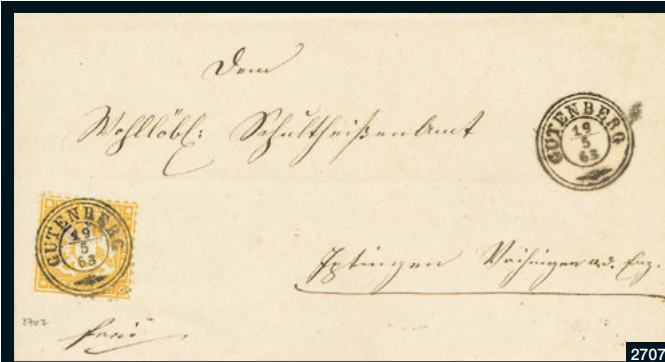 Dem
Wohllöbl: Schultheißenamt
GUTENBERG
19
5
63
GUTENBERG
19
5
63
Iptingen Vaihingen a.d. Enz.
2707
frei
2707